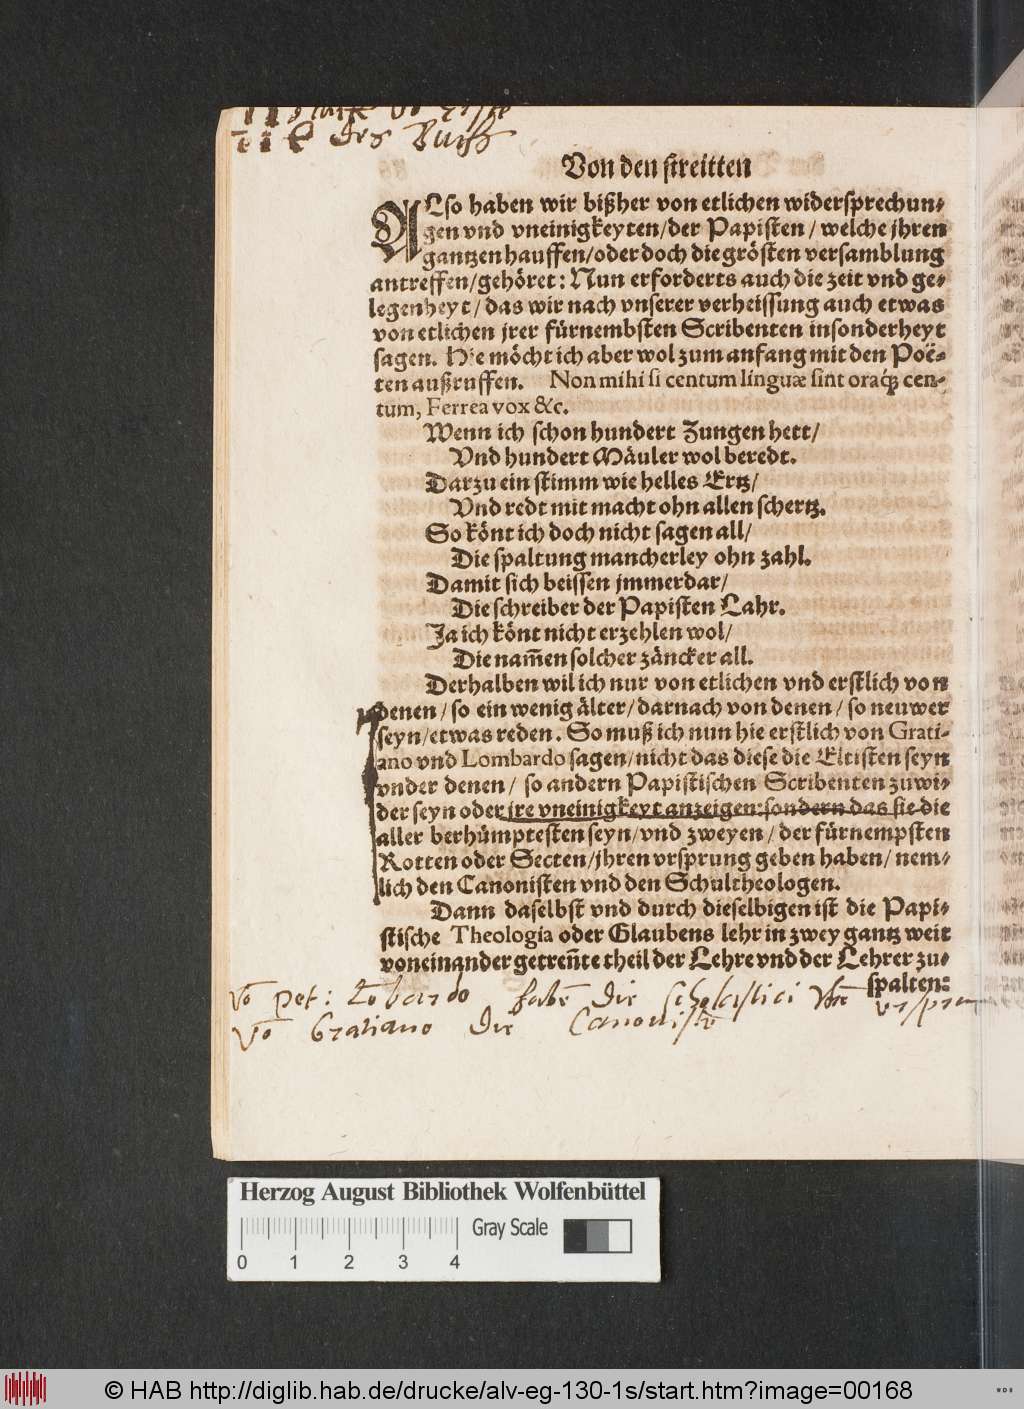 des Buchs
Von den streitten
ALso haben wir bißher von etlichen widersprechun⸗
gen vnd vneinigkeyten/der Papisten / welche jhren
gantzen hauffen/oder doch die grösten versamblung
antreffen/gehöret: Nun erforderts auch die zeit vnd ge⸗
legenheyt/ das wir nach vnserer verheissung auch etwas
von etlichen jrer fürnembsten Scribenten insonderheyt
sagen. Hie möcht ich aber wol zum anfang mit den Poë⸗
ten außruffen. Non mihi si centum linguæ sint oraq́; cen-
tum, Ferrea vox &c.
Wenn ich schon hundert Zungen hett/
Vnd hundert Mäuler wol beredt.
Darzu ein stimm wie helles Ertz/
Vnd redt mit macht ohn allen schertz.
So könt ich doch nicht sagen all/
Die spaltung mancherley ohn zahl.
Damit sich beissen jmmerdar/
Die schreiber der Papisten Lahr.
Ja ich könt nicht erzehlen wol/
Die nam̄en solcher zäncker all.
Derhalben wil ich nur von etlichen vnd erstlich von
denen/ so ein wenig älter/ darnach von denen/ so neuwer
seyn/etwas reden. So muß ich nun hie erstlich von Grati-
ano vnd Lombardo sagen/nicht das diese die Eltisten seyn
vnder denen/ so andern Papistischen Scribenten zuwi⸗
der seyn oder jre vneinigkeyt anzeigen: sondern das sie die
aller berhümptesten seyn/vnd zweyen/ der fürnempsten
Rotten oder Secten/jhren vrsprung geben haben/ nem⸗
lich den Canonisten vnd den Schultheologen.
Dann daselbst vnd durch dieselbigen ist die Papi⸗
stische Theologia oder Glaubens lehr in zwey gantz weit
voneinander getren̄te theil der Lehre vnd der Lehrer zu⸗
spalten:
Vō Pet: Lōbardo habē die Scholastici
Vō Gratiano die Canonistē
Herzog August Bibliothek Wolfenbüttel
Gray Scale
0 1 2 3 4
© HAB http://diglib.hab.de/drucke/alv-eg-130-1s/start.htm?image=00168